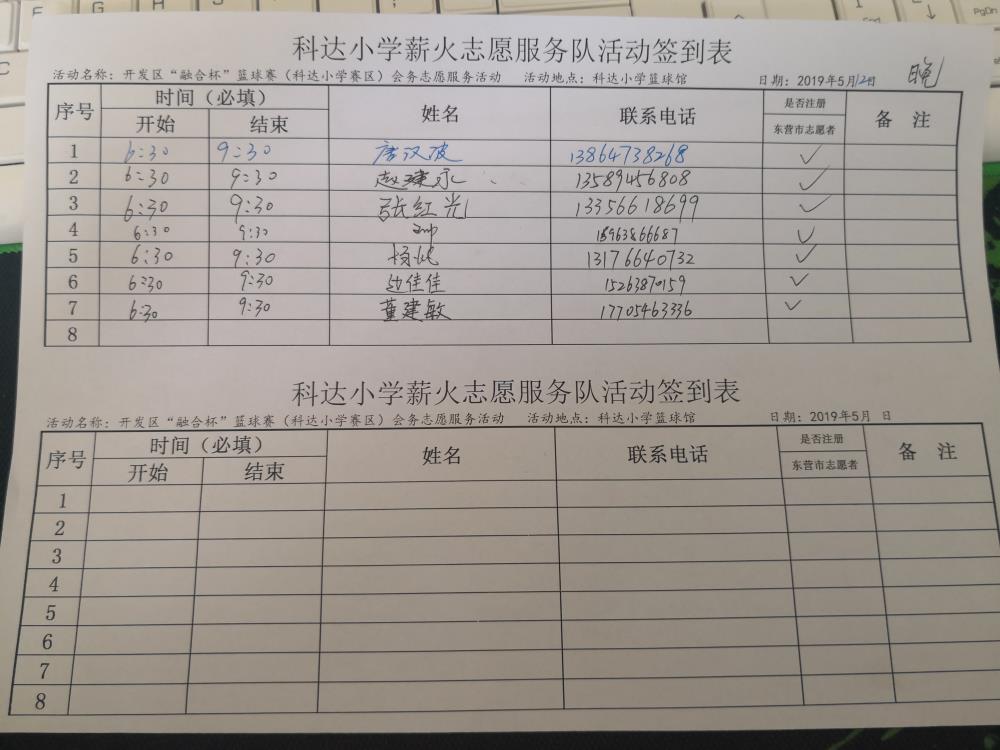 科达小学薪火志愿服务队活动签到表
活动名称：开发区“融合杯”篮球赛（科达小学赛区）会务志愿服务活动 活动地点：科达小学篮球馆 日期：2019年5月12日 晚
序号 时间（必填） 姓名 联系电话 是否注册 备 注
开始 结束 东营市志愿者
1 6:30 9:30 唐汉波 13864738268 ✓
2 6:30 9:30 赵建永 13589456808 ✓
3 6:30 9:30 张红光 13356618699 ✓
4 6:30 9:30 ✓
5 6:30 9:30 13176640732 ✓
6 6:30 9:30 边佳佳 15263870159 ✓
7 6:30 9:30 董建敏 17705463336 ✓
8
科达小学薪火志愿服务队活动签到表
活动名称：开发区“融合杯”篮球赛（科达小学赛区）会务志愿服务活动 活动地点：科达小学篮球馆 日期：2019年5月 日
序号 时间（必填） 姓名 联系电话 是否注册 备 注
开始 结束 东营市志愿者
1
2
3
4
5
6
7
8